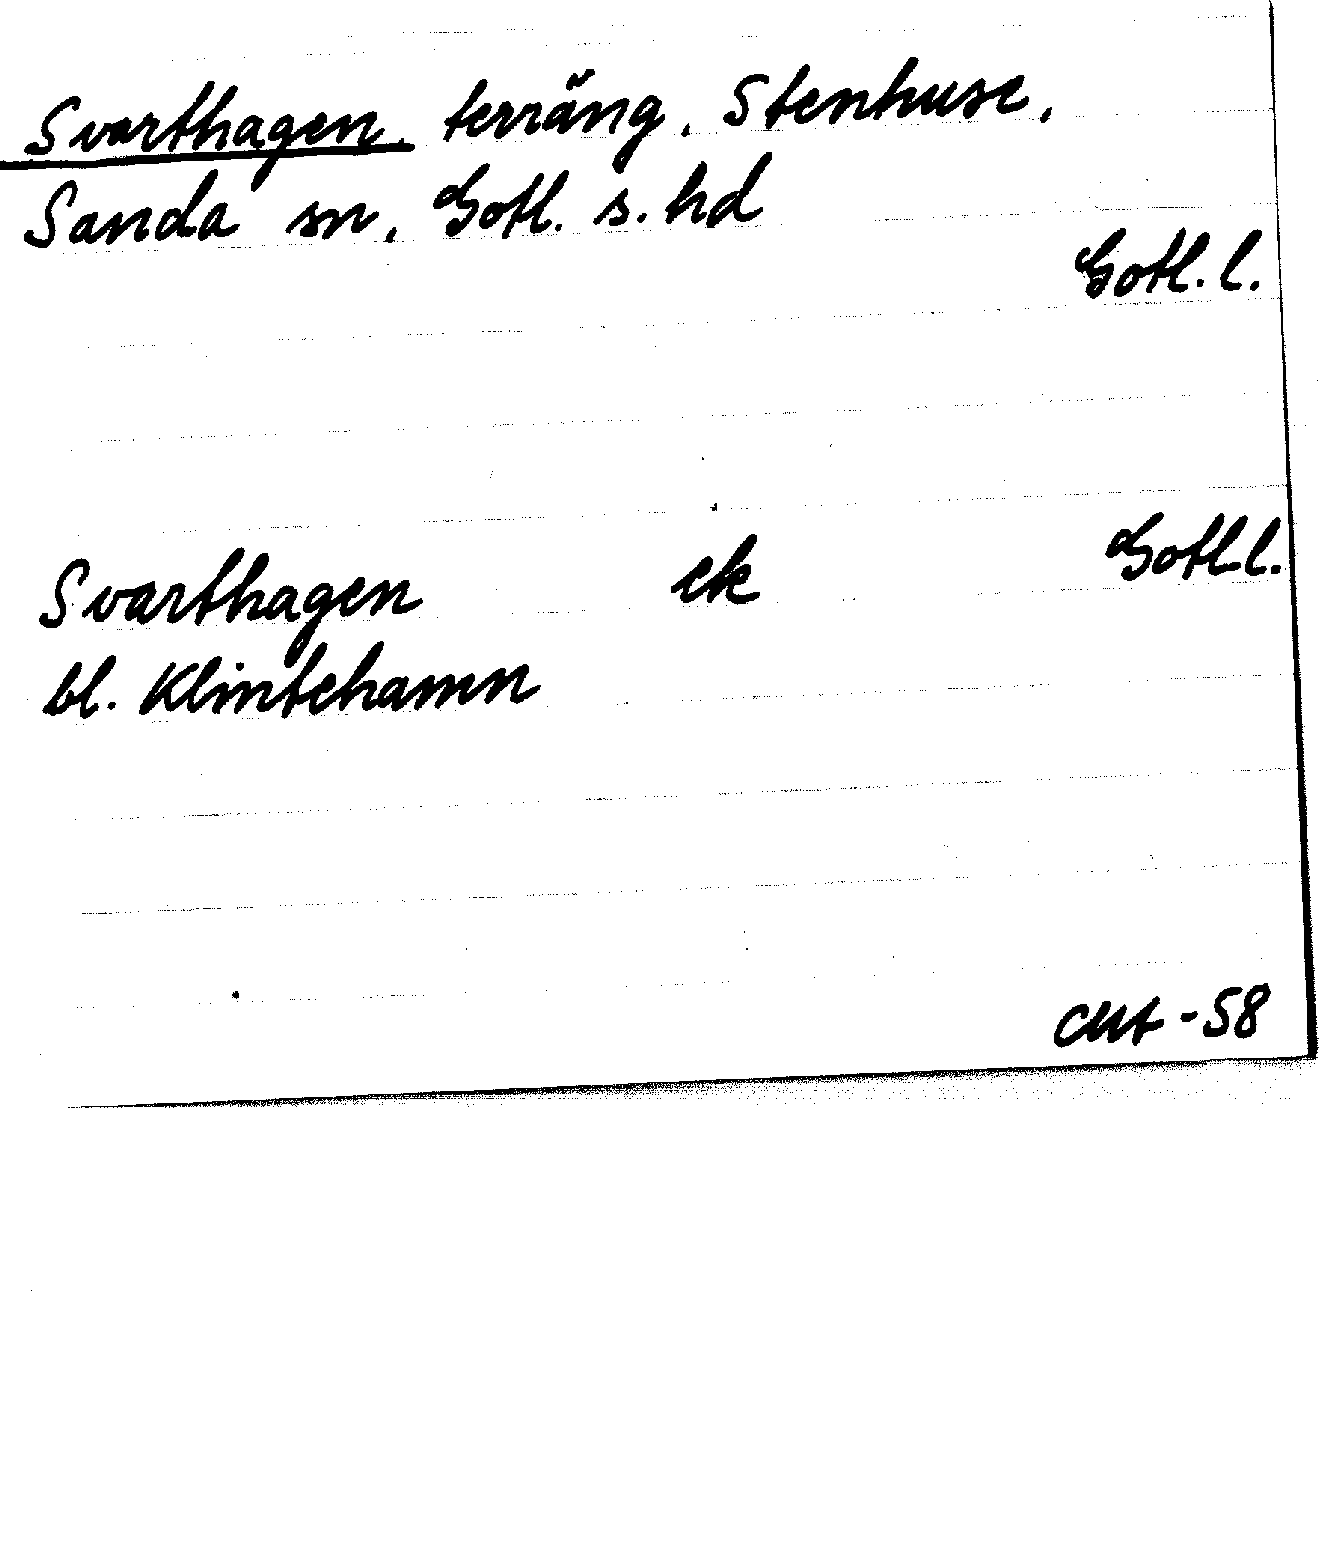 Svarthagen, terräng, Stenhuse,
Sanda sn, Gotl. s. hd
Gotl. l.
Svarthagen ek Gotl.l.
bl. Klintehamn
-58